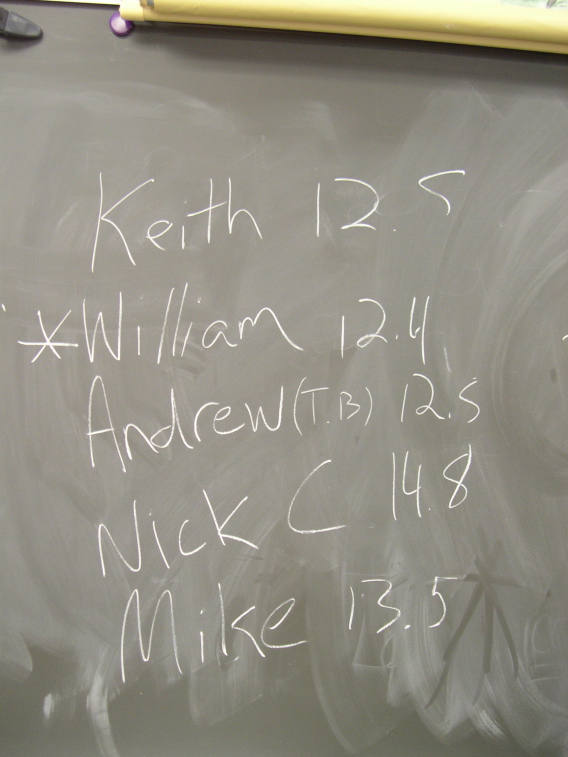 Keith 12.5
*William 12.4
Andrew (T.B) 12.5
Nick C 14.8
Mike 13.5